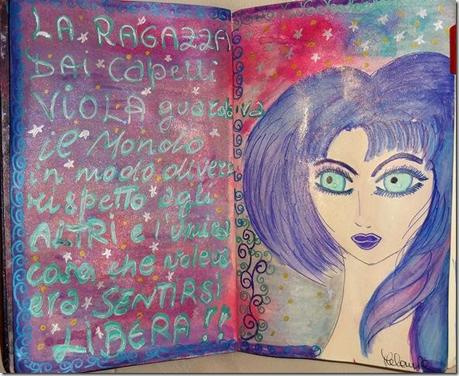 LA RAGAZZA
DAI CAPELLI
VIOLA guardava
il MONDO
in modo diverso
rispetto agli
ALTRI e l'unica
cosa che voleva
era SENTIRSI
LIBERA!!